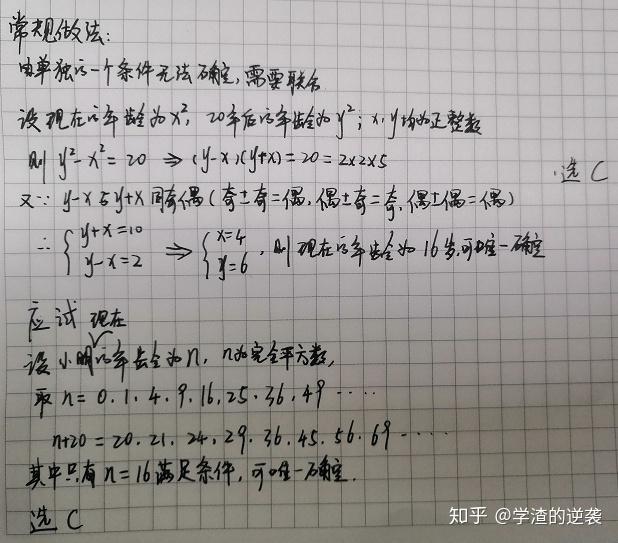 常规做法:
由单独的一个条件无法确定,需要联合
设现在的年龄为x²,20年后的年龄为y²;x,y均为正整数
则 y²-x²=20 ⇒ (y-x)(y+x)=20=2x2x5
选C
又∵ y-x与y+x同奇偶(奇±奇=偶,偶±奇=奇,偶±偶=偶)
∴ { y+x=10 ⇒ { x=4
y-x=2 y=6 ,则现在的年龄为16岁,可唯一确定
应试
现在
设小明的年龄为n,n为完全平方数,
取n=0.1.4.9.16.25.36.49....
n+20=20.21.24.29.36.45.56.69.....
其中只有n=16满足条件,可唯一确定.
选C
知乎 @学渣的逆袭